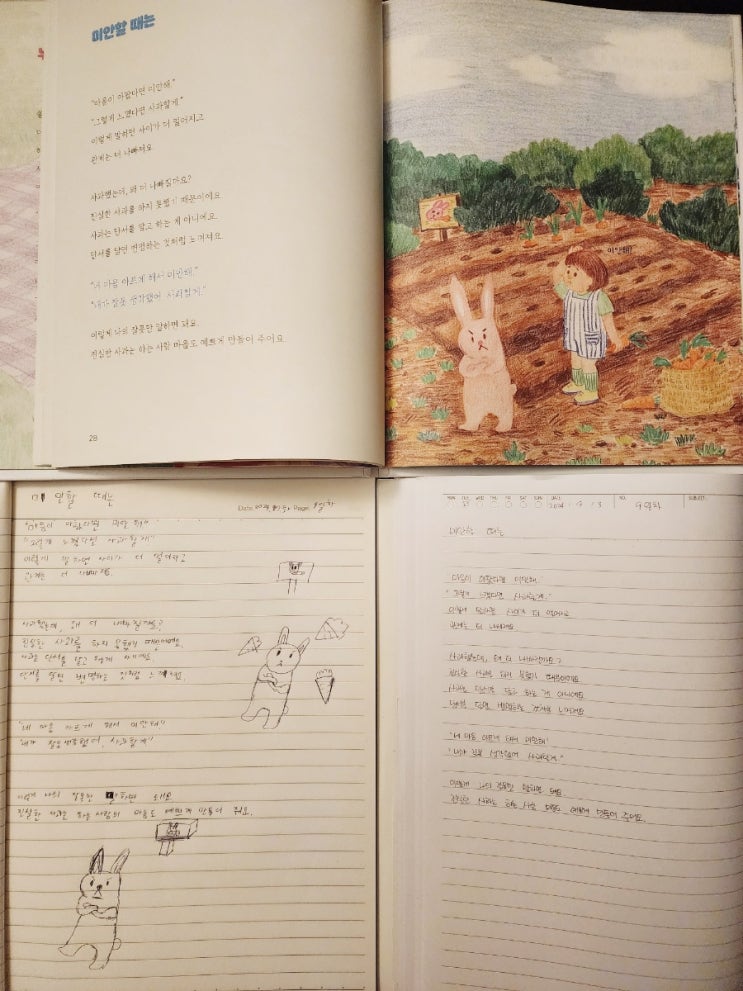 미안할 때는
"마음이 아팠다면 미안해."
"그렇게 느꼈다면 사과할게."
이렇게 말하면 사이가 더 멀어지고
관계는 더 나빠져요.
사과했는데, 왜 더 나빠질까요?
진실한 사과를 하지 못했기 때문이에요.
사과는 단서를 달고 하는 게 아니에요.
단서를 달면 변명하는 것처럼 느껴져요.
"네 마음 아프게 해서 미안해."
"내가 잘못 생각했어. 사과할게."
이렇게 나의 잘못만 말하면 돼요.
진실한 사과는 하는 사람 마음도 예쁘게 만들어 주어요.
28
미안해!
미안할 때는
Date Page
"마음이 아팠다면 미안해"
"그렇게 느꼈다면 사과할게"
이렇게 말하면 사이가 더 멀어지고
관계는 더 나빠져요
사과했는데, 왜 더 나빠질까요?
진실한 사과를 하지 못했기 때문이에요.
사과는 단서를 달고 하는게 아니에요
단서를 달면 변명하는 것처럼 느껴져요.
"네 마음 아프게 해서 미안해"
"내가 잘못 생각했어, 사과할게"
이렇게 나의 잘못만 말하면 돼요
진실한 사과는 하는 사람의 마음도 예쁘게 만들어 줘요.
MON TUE WED THU FRI SAT SUN DATE 2024 . 9 / 3 NO. 9일차 SUBJECT.
미안할 때는
"마음이 아팠다면 미안해."
"그렇게 느꼈다면 사과할게."
이렇게 말하면 사이가 더 멀어지고
관계는 더 나빠져요
사과했는데, 왜 더 나빠질까요?
진실한 사과를 하지 못했기 때문이에요
사과는 단서를 달고 하는 게 아니에요
단서를 달면 변명하는 것처럼 느껴져요
"네 마음 아프게 해서 미안해"
"내가 잘못 생각했어 사과할게."
이렇게 나의 잘못만 말하면 돼요
진실한 사과는 하는 사람 마음도 예쁘게 만들어 주어요.